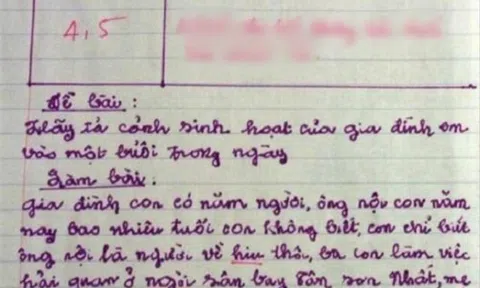 4,5
Đề bài :
Hãy tả cảnh sinh hoạt của gia đình em
vào một buổi trong ngày
Làm bài :
Gia đình con có năm người, ông nội con năm
nay bao nhiêu tuổi con không biết, con chỉ biết
ông nội là người về hiu thôi, ba con làm việc
hải quan ở ngoài sân bay Tân Sơn Nhất, mẹ